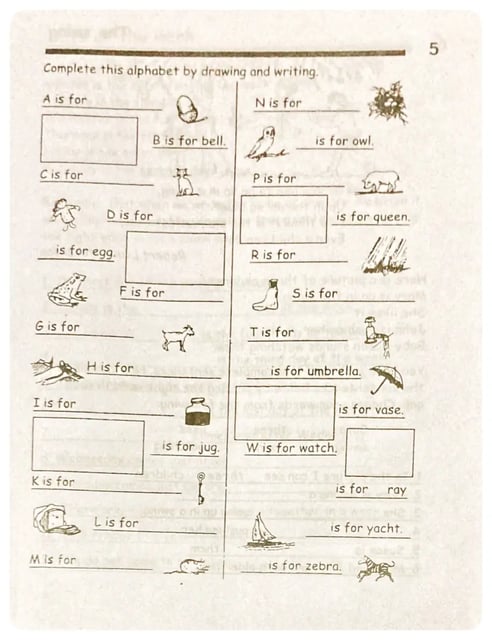 5
Complete this alphabet by drawing and writing.
A is for
B is for bell.
C is for
D is for
is for egg.
F is for
G is for
H is for
I is for
is for jug.
K is for
L is for
M is for
N is for
is for owl.
P is for
is for queen.
R is for
S is for
T is for
is for umbrella.
is for vase.
W is for watch.
is for ray
is for yacht.
is for zebra.